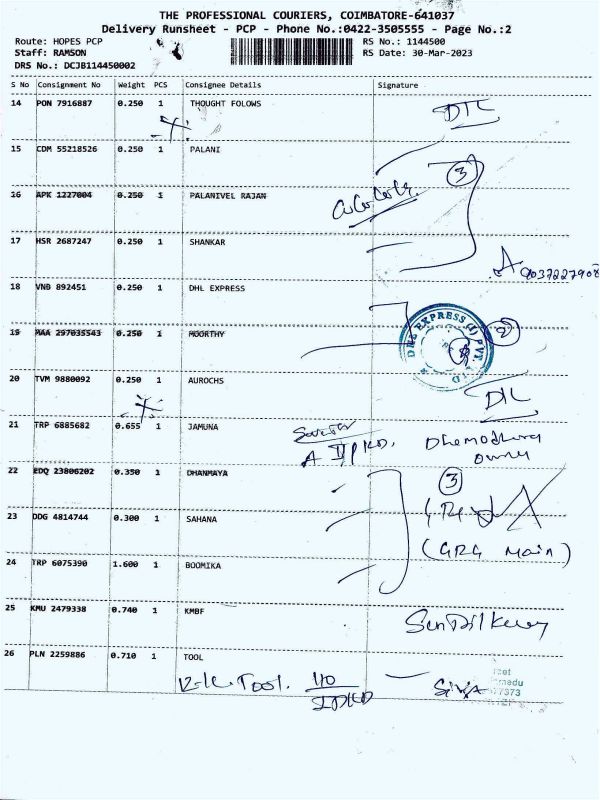 THE PROFESSIONAL COURIERS, COIMBATORE-641037
Delivery Runsheet - PCP - Phone No.:0422-3505555 - Page No.:2
Route: HOPES PCP RS No.: 1144500
Staff: RAMSON RS Date: 30-Mar-2023
DRS No.: DCJB114450002
S No Consignment No Weight PCS Consignee Details Signature
14 PON 7916887 0.250 1 THOUGHT FOLOWS
DTL
15 CDM 55218526 0.250 1 PALANI
3
16 APK 1227004 0.250 1 PALANIVEL RAJAN
17 HSR 2687247 0.250 1 SHANKAR
9037227908
18 VNB 892451 0.250 1 DHL EXPRESS
DHL EXPRESS (I) PVT. LTD
2
19 MAA 297035543 0.250 1 MOORTHY
20 TVM 9880092 0.250 1 AUROCHS
DTL
21 TRP 6885682 0.655 1 JAMUNA
owner
22 EDQ 23806202 0.350 1 DHANMAYA
3
23 DDG 4814744 0.300 1 SAHANA
(GRG Main)
24 TRP 6075390 1.600 1 BOOMIKA
25 KMU 2479338 0.740 1 KMBF
26 PLN 2259886 0.710 1 TOOL
Tool. Siva